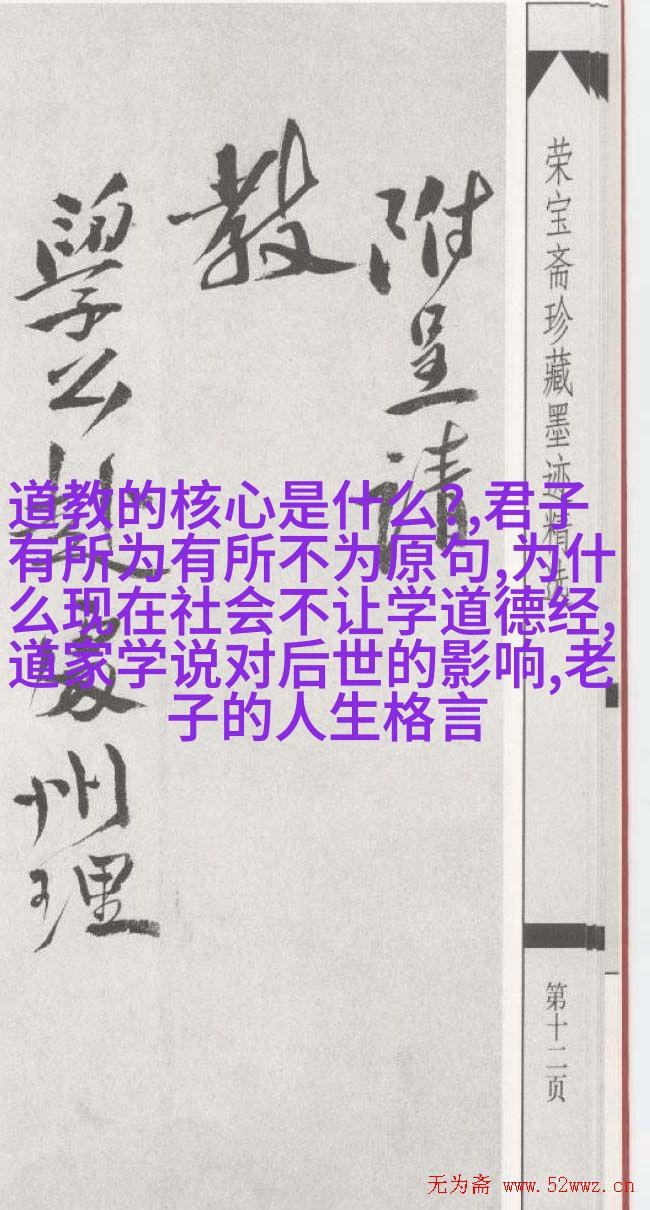 附呈请
教
荣宝斋珍藏墨迹精选
道教的核心是什么?,君子
有所为有所不为原句,为什
么现在社会不让学道德经,
道家学说对后世的影响,老
子的人生格言
州理
第十二页
无为斋 www.52wwz.cn